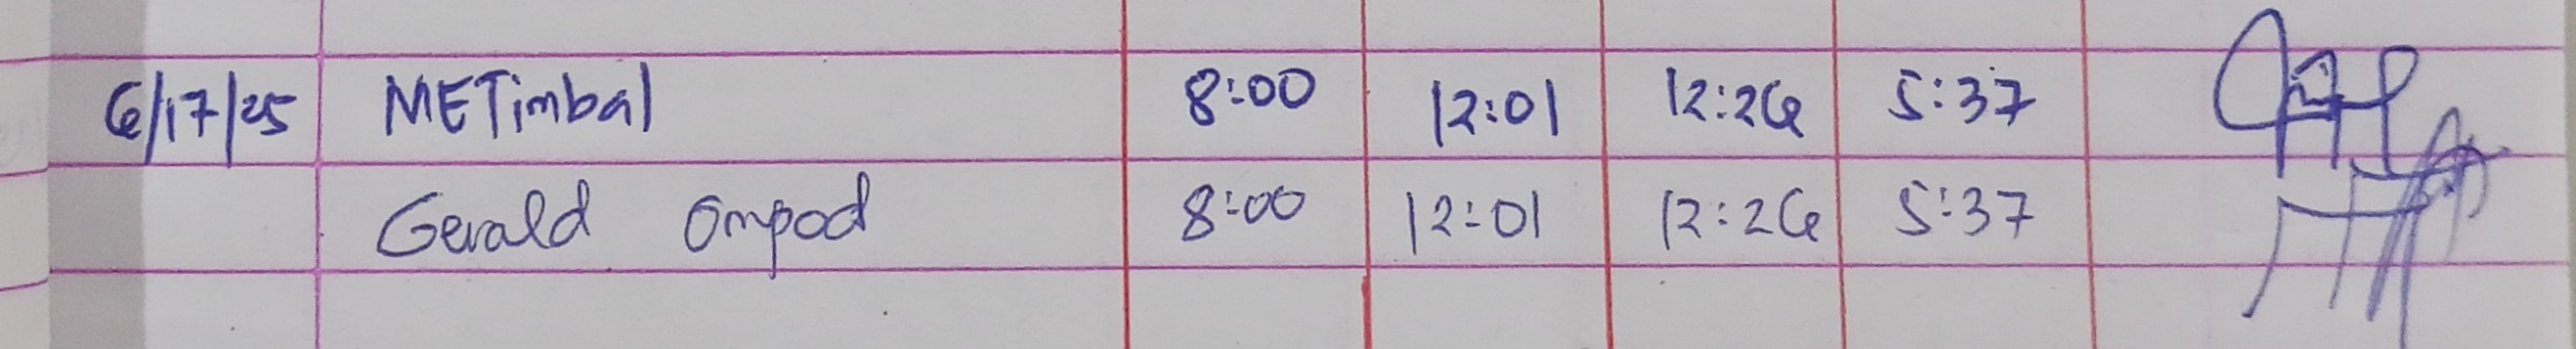 6/17/25 METimbal 8:00 12:01 12:26 5:37
Gerald Ompod 8:00 12:01 12:26 5:37